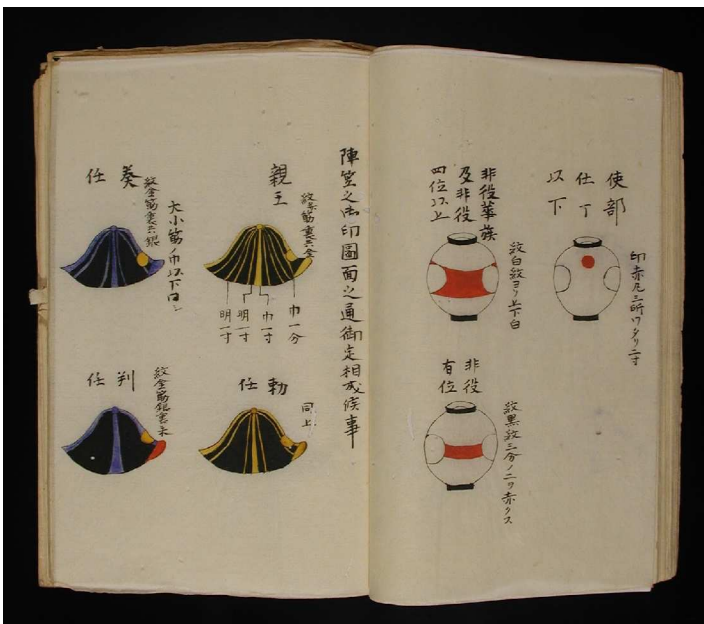 使部
仕丁
以下
印赤丸三所ワタリ二寸
非役華族
及非役
四位以上
紋白紋ヨリ上下白
非役
有位
紋黒紋三分ノ二ヲ赤クス
陣笠之法印圖面之通御定相成候事
親王
紋条筋裏共金
巾一分
巾一寸
明一寸
明一寸
勅任
同上
奏任
紋金筋裏共銀
大小筋ノ巾以下同シ
判任
紋金筋銀裏朱